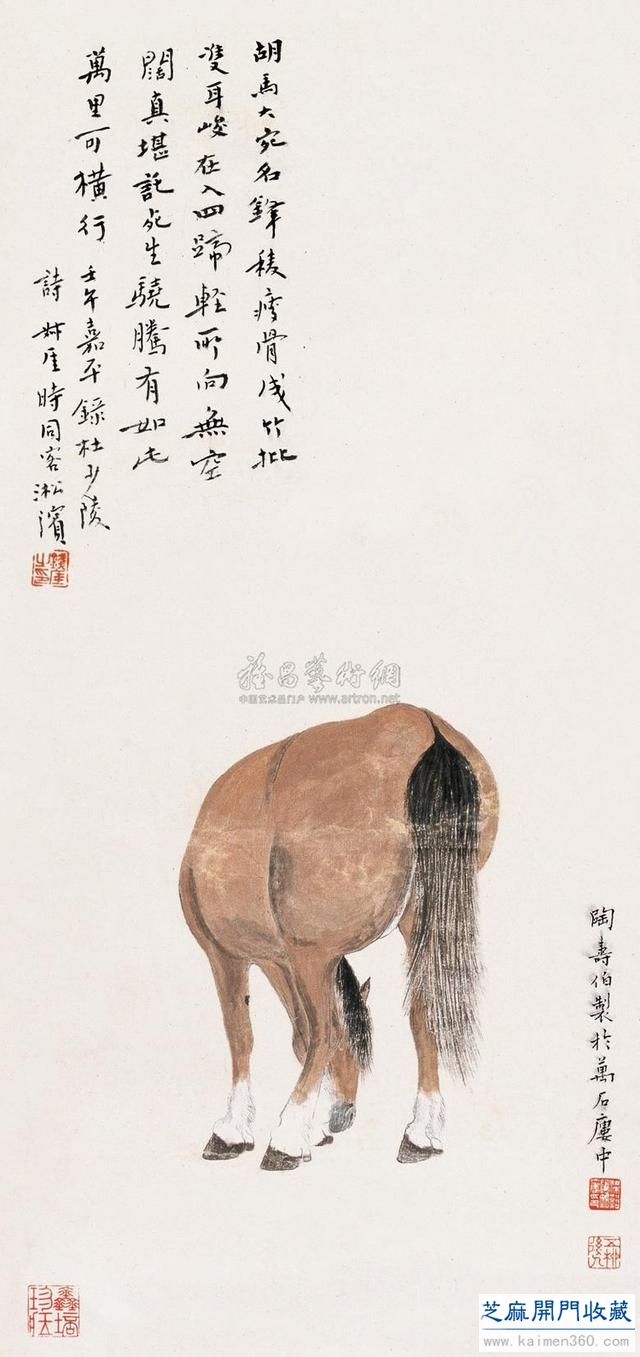 胡馬大宛名鋒稜瘦骨成竹批
雙耳峻入四蹄輕所向無空
闊真堪託死生驍騰有如此
萬里可橫行 壬午嘉平錄杜少陵
詩 叔厓時同客淞濱
雅昌藝術網
中国艺术品门户 www.artron.net
陶壽伯製於萬石廔中
芝麻開門收藏
www.kaimen360.com